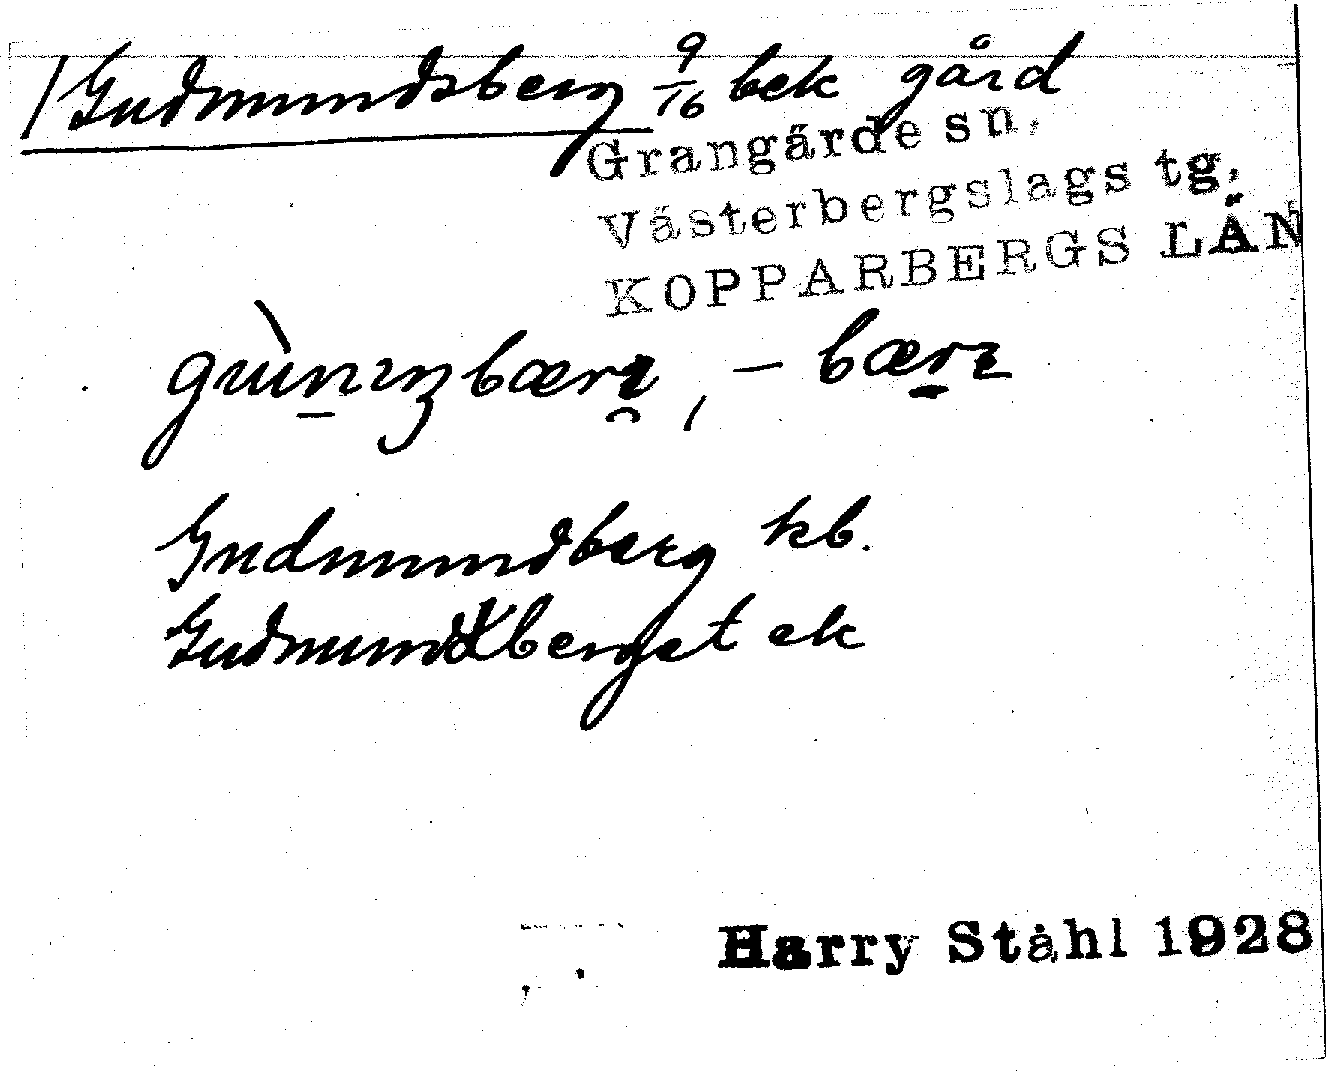 /Gudmundsberg 9/16 bek gård
Grangärde sn.
Västerbergslags tg.
KOPPARBERGS LÄN
Gudmundberg kb.
Gudmundberget ek
Harry Ståhl 1928